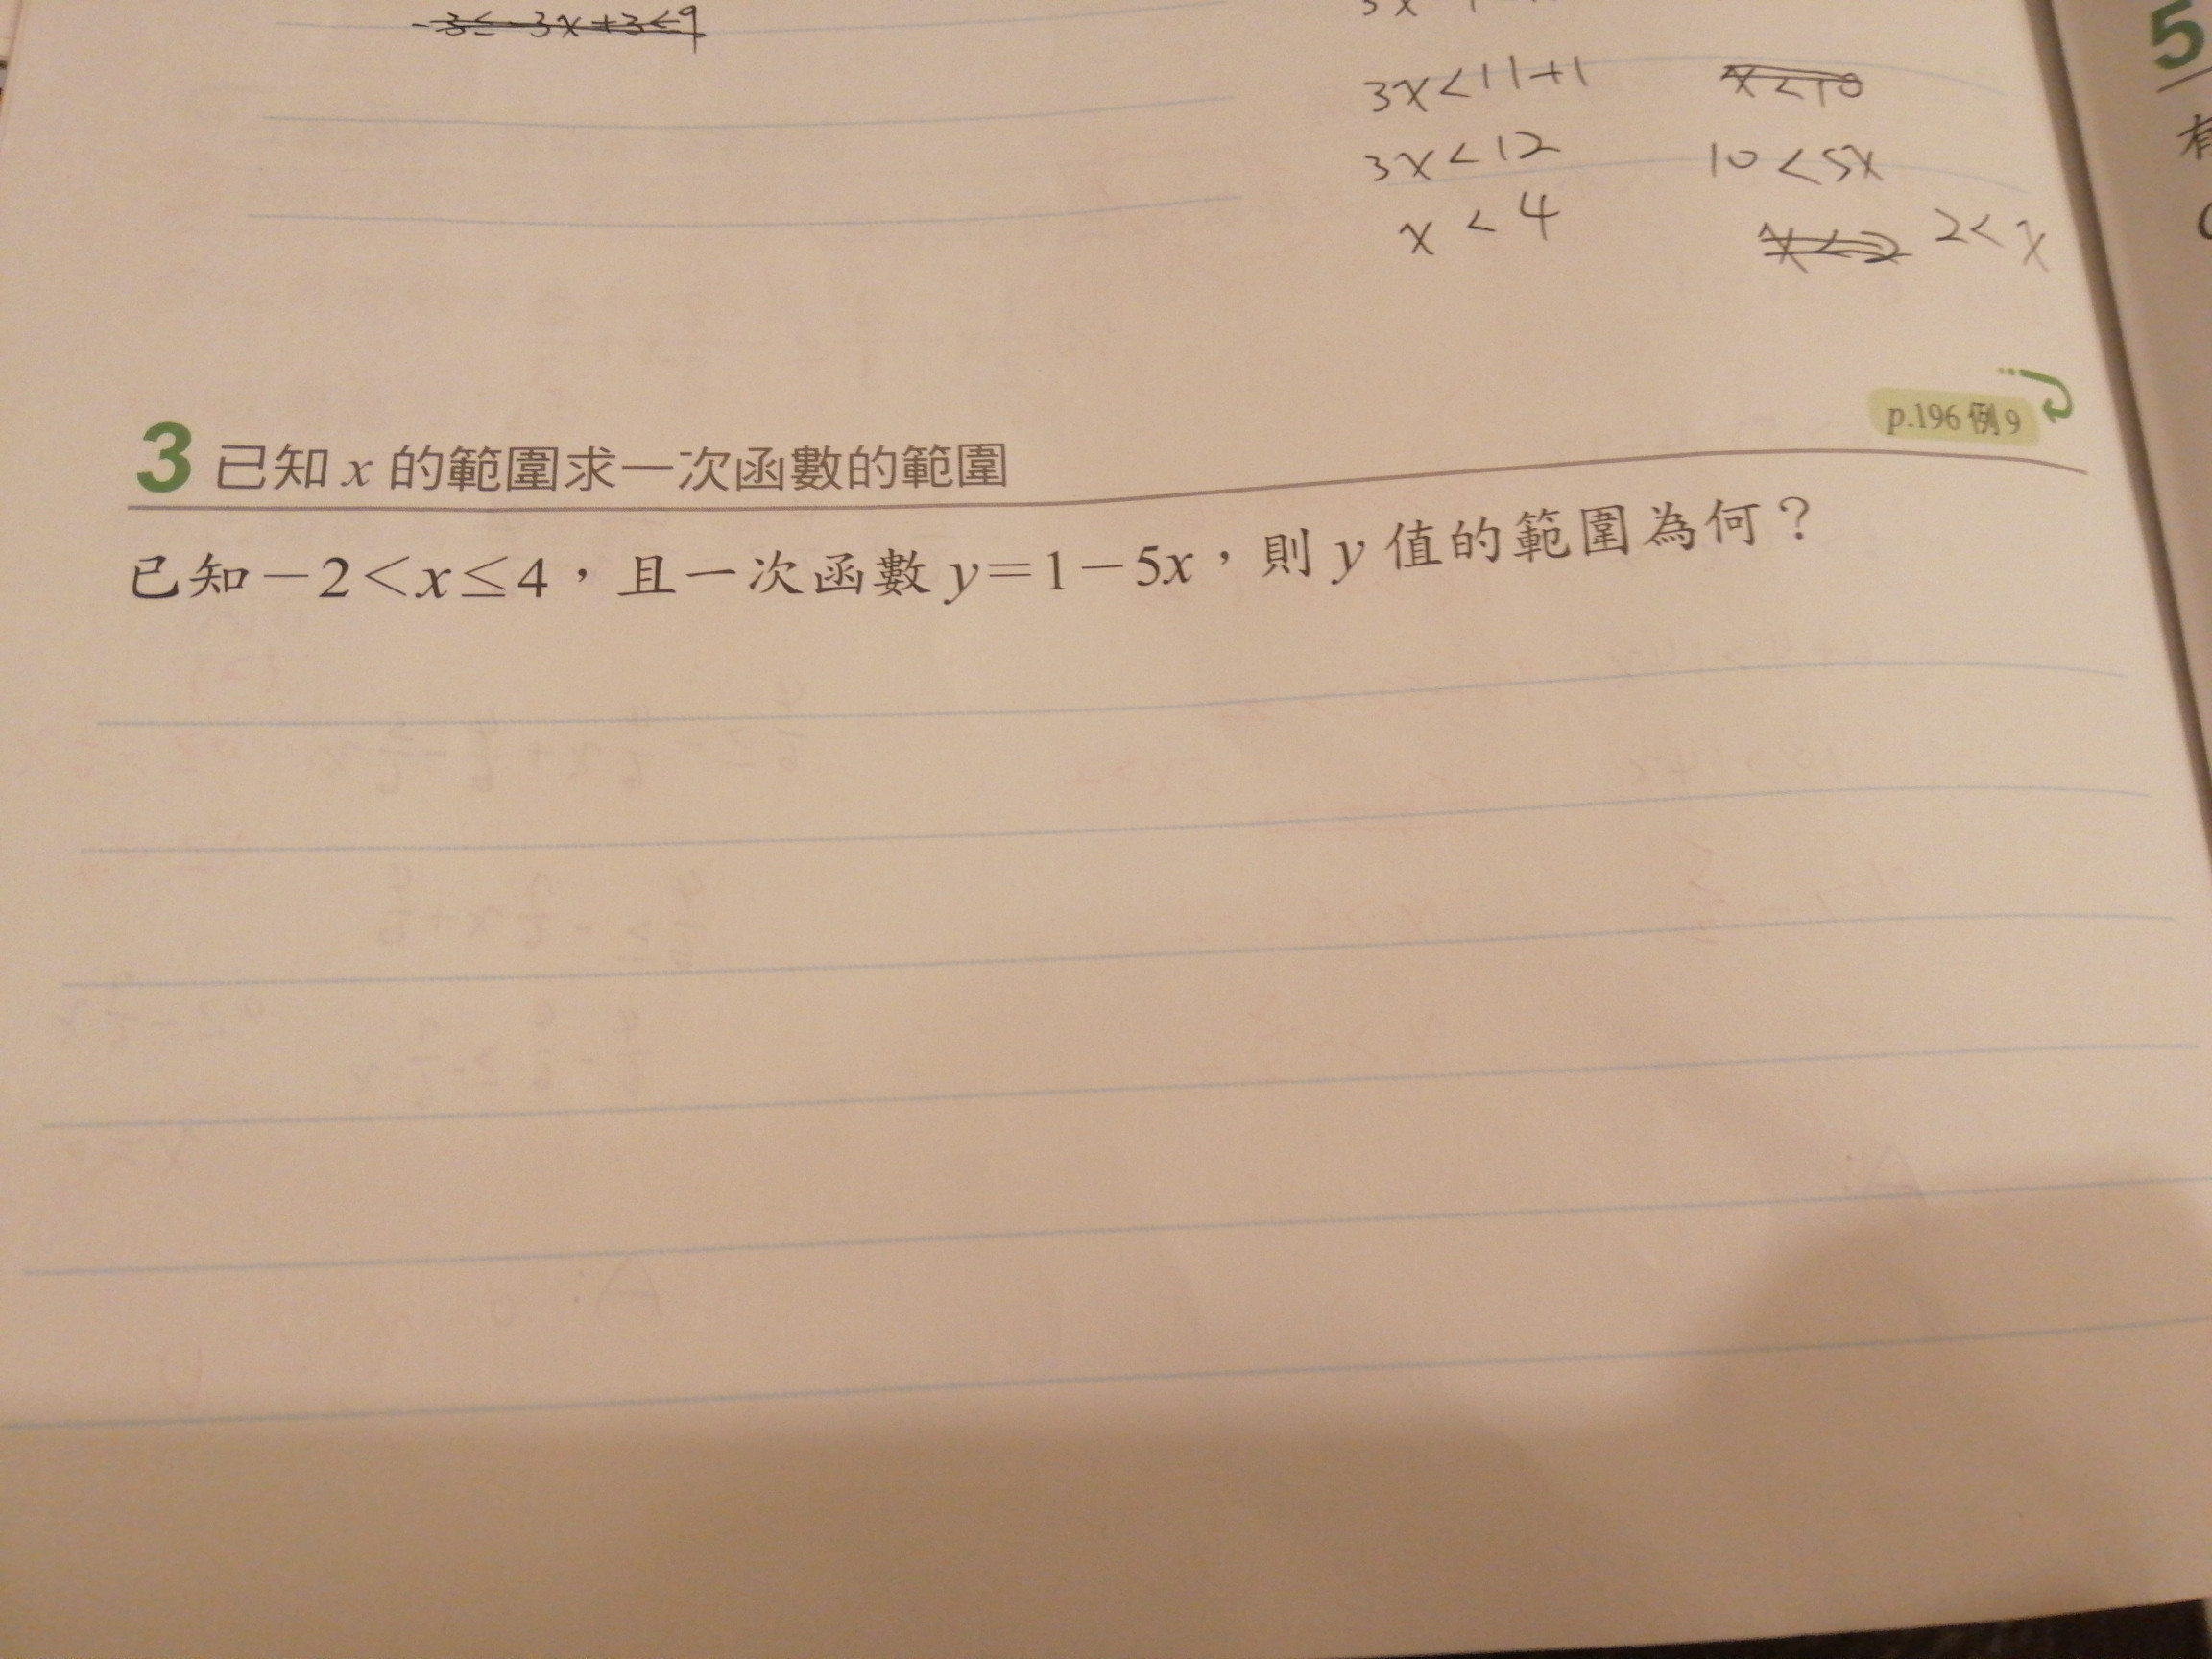 -3≤-3x+3<9
3x<11+1
x<10
3x<12
10<5x
x<4
x<2 2<x
5
有
p.196 例9
3 已知 x 的範圍求一次函數的範圍
已知-2<x≤4,且一次函數 y=1-5x,則 y 值的範圍為何?